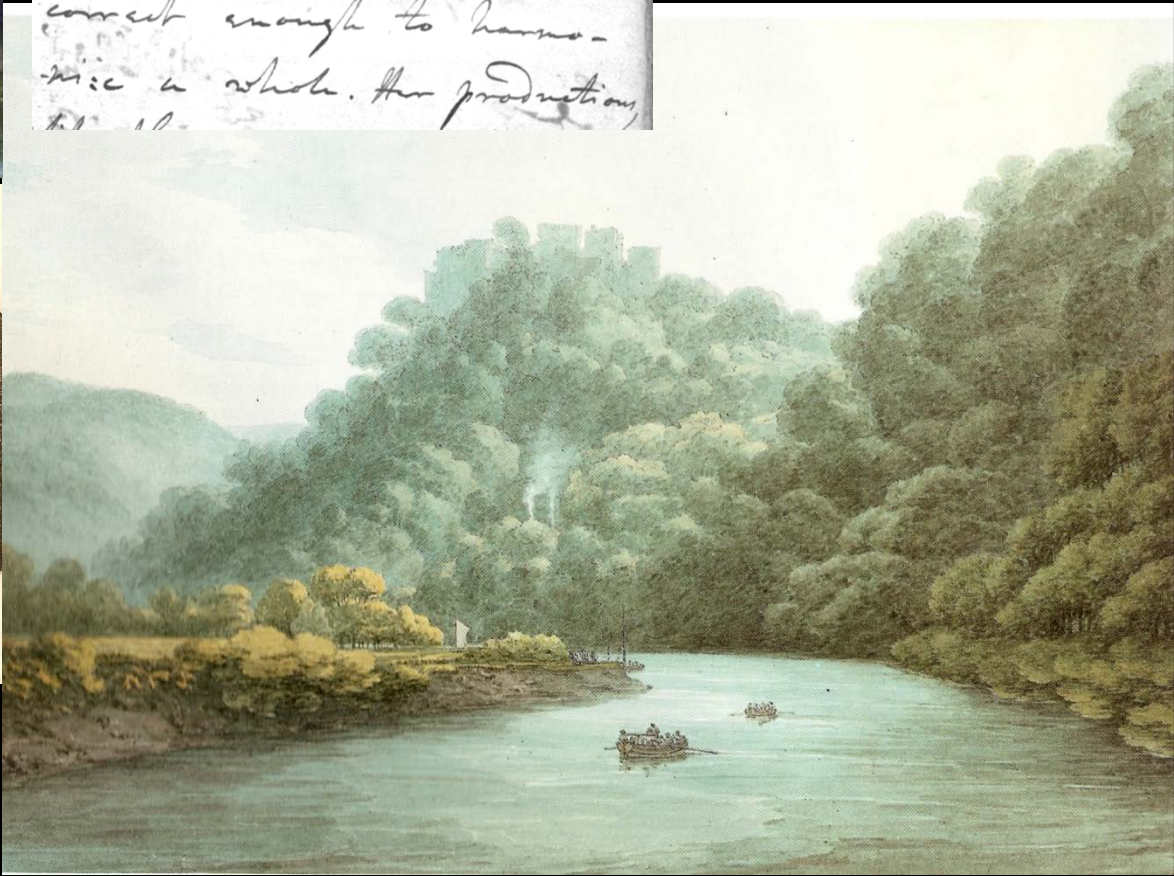 correct enough to harmo-
nize a whole. Her productions,